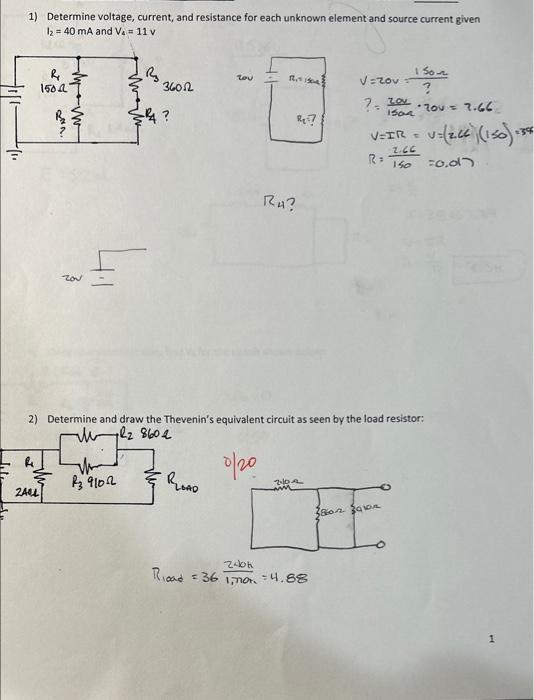 1) Determine voltage, current, and resistance for each unknown element and source current given
I₂ = 40 mA and V₄ = 11 v
R₁
150Ω
R₃
360Ω
R₂
?
R₄ ?
20V
R₁=150Ω
R₂?
V=20V · 150Ω
?
?= 20V
150Ω
· 20V = 2.66
V=IR = V=(2.66)(150)=
R= 2.66
150
=0.017
R4?
20V
2) Determine and draw the Thevenin's equivalent circuit as seen by the load resistor:
R₂ 860Ω
R₁
R₃ 910Ω
RLOAD
0/20
240Ω
860Ω
910Ω
Rload = 36
= 4.88
1